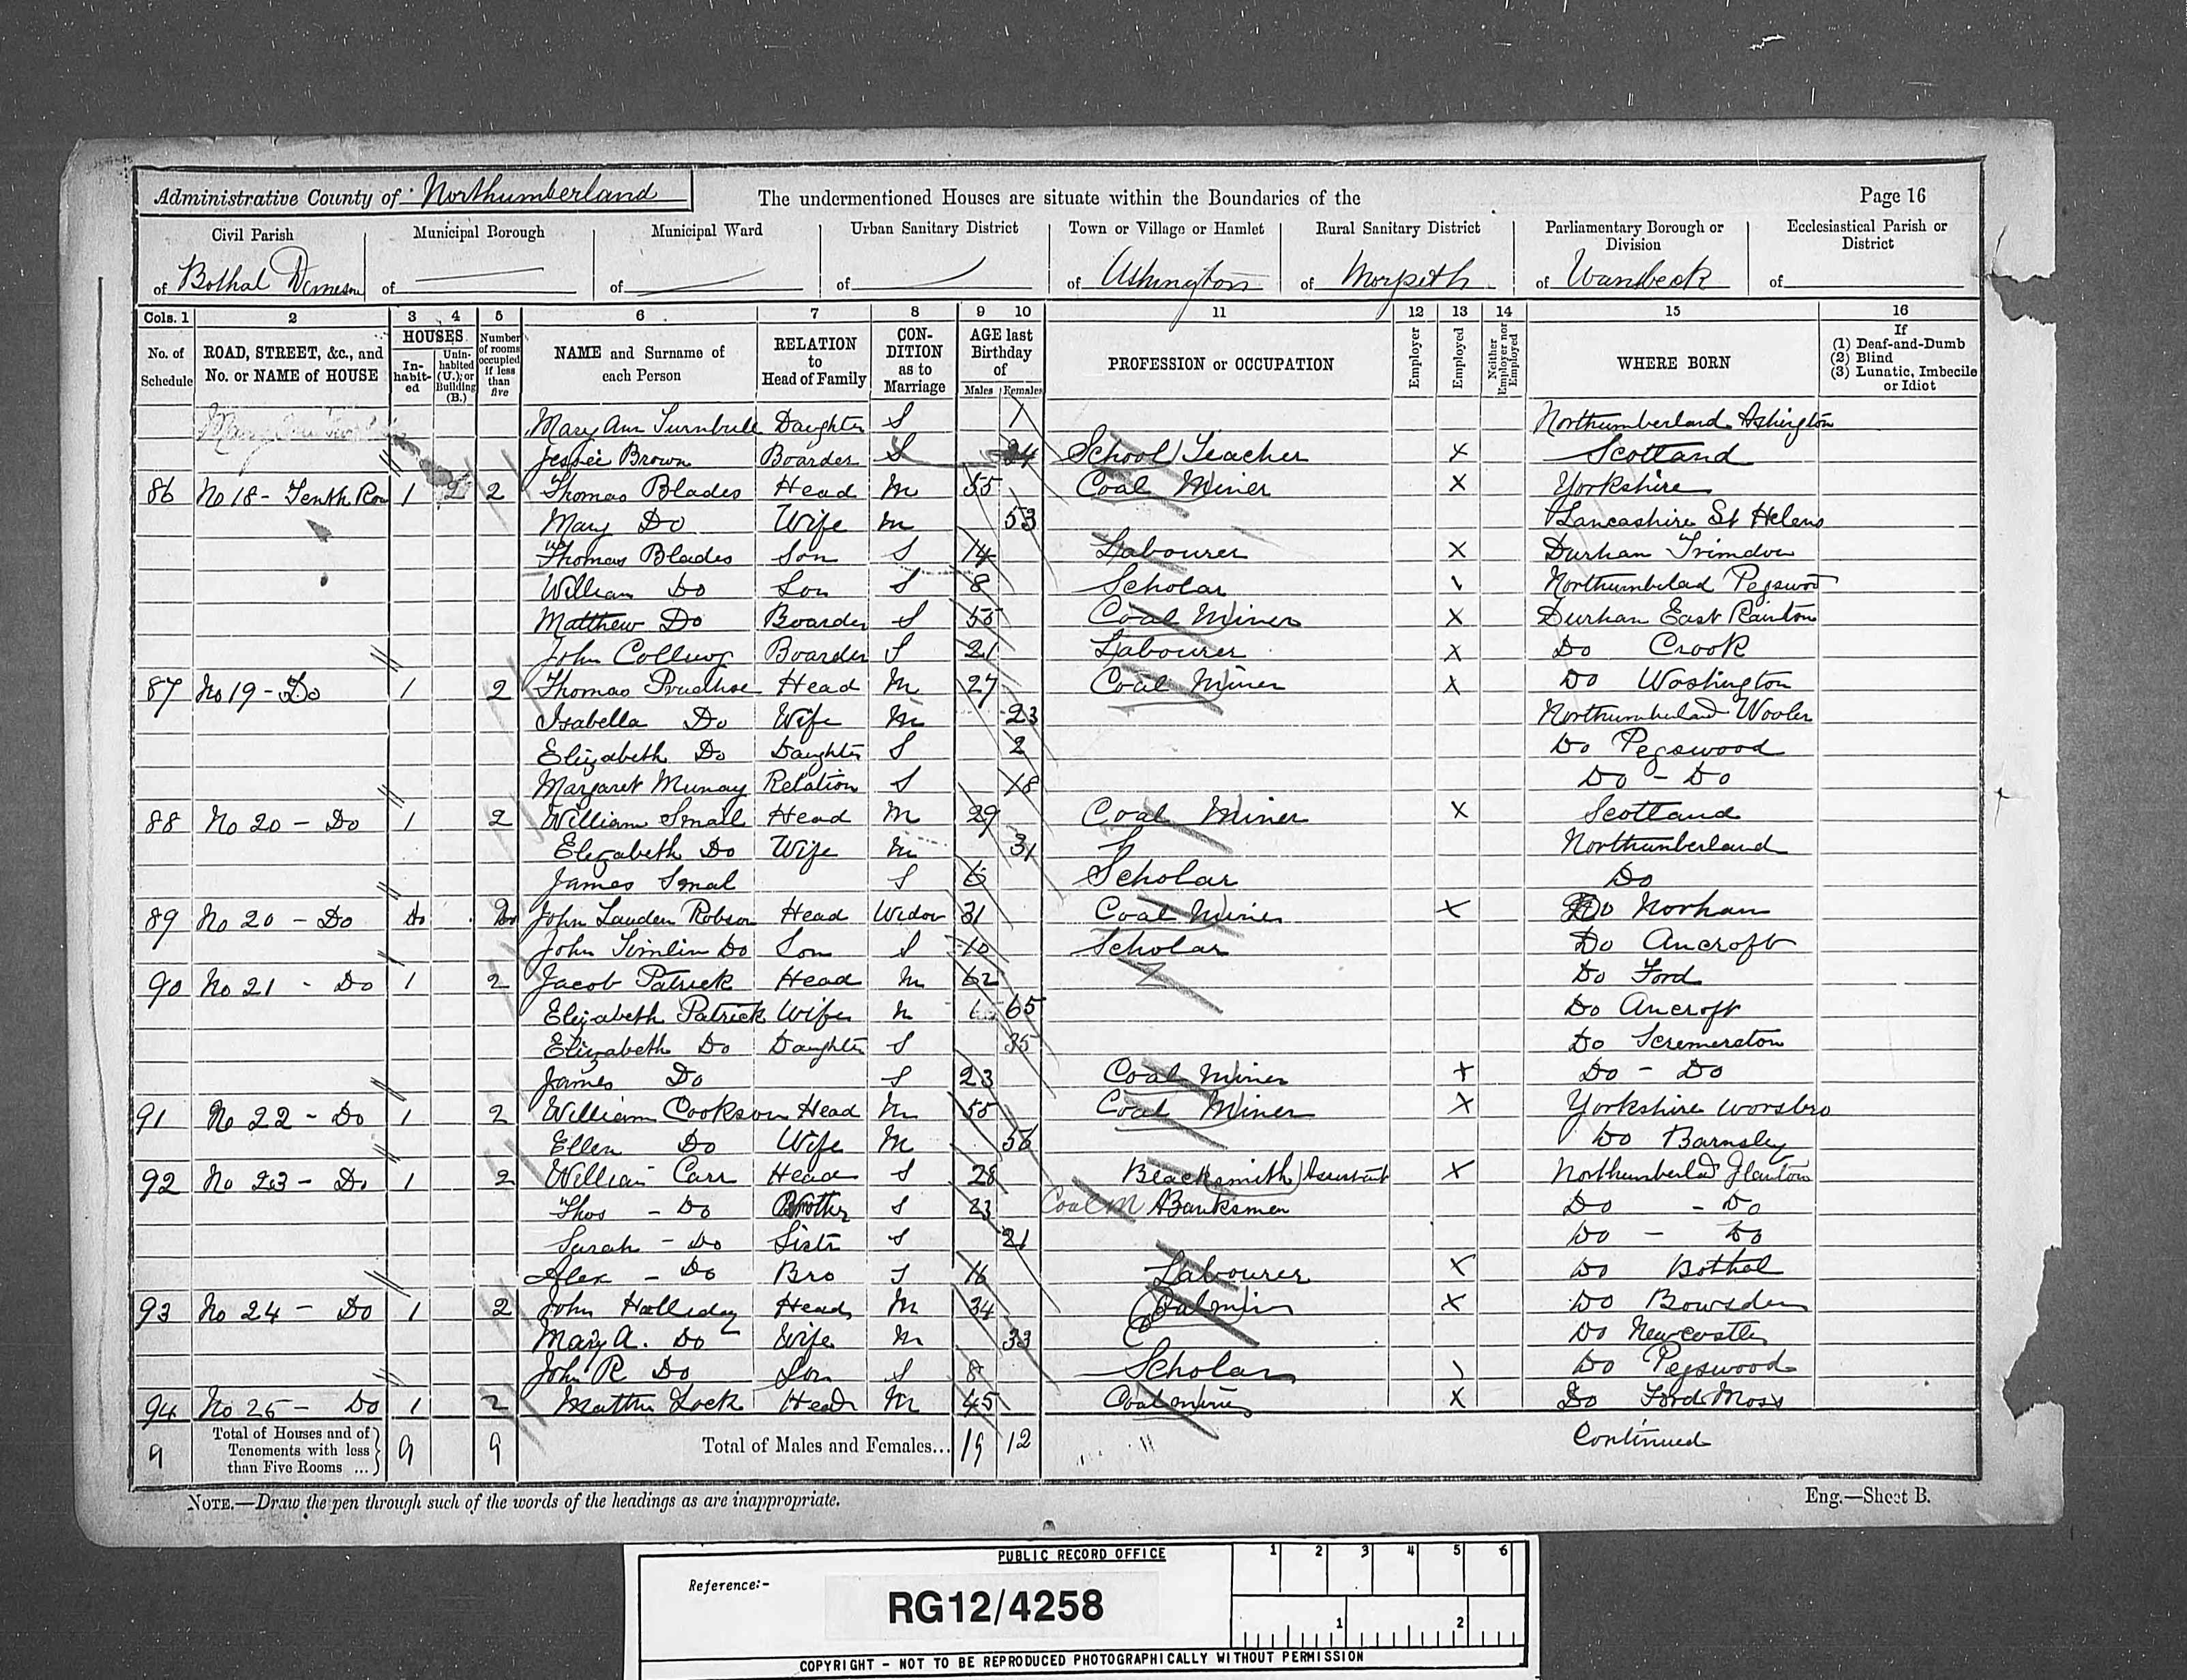 Administrative County of Northumberland The undermentioned Houses are situate within the Boundaries of the Page 16
Civil Parish Municipal Borough Municipal Ward Urban Sanitary District Town or Village or Hamlet Rural Sanitary District Parliamentary Borough or Division Ecclesiastical Parish or District
of Bothal Demesne of of of of Ashington of Morpeth of Wansbeck of
Cols. 1 2 3 4 5 6 7 8 9 10 11 12 13 14 15 16
No. of Schedule ROAD, STREET, &c., and No. or NAME of HOUSE HOUSES In-habit-ed Unin-habited (U.), or Building (B.) Number of rooms occupied if less than five NAME and Surname of each Person RELATION to Head of Family CON-DITION as to Marriage AGE last Birthday of Males Females PROFESSION or OCCUPATION Employer Employed Neither Employer nor Employed WHERE BORN If (1) Deaf-and-Dumb (2) Blind (3) Lunatic, Imbecile or Idiot
Mary Ann Turnbull Daughter S 1 Northumberland Ashington
Jessie Brown Boarder S 24 School Teacher X Scotland
86 No 18 - Tenth Row 1 2 Thomas Blades Head M 55 Coal Miner X Yorkshire
Mary Do Wife M 53 Lancashire St Helens
Thomas Blades Son S 14 Labourer X Durham Trimdon
William Do Son S 8 Scholar Northumbelad Pegswood
Matthew Do Boarder S 55 Coal Miner X Durham East Rainton
John Boarder S 21 Labourer X Do Crook
87 No 19 - Do 1 2 Thomas Prudhoe Head M 27 Coal Miner X Do Washington
Isabella Do Wife M 23 Northumberland Wooler
Elizabeth Do Daughter S 2 Do Pegswood
Margaret Murray Relation S 18 Do - Do
88 No 20 - Do 1 2 William Smail Head M 29 Coal Miner X Scotland
Elizabeth Do Wife M 31 Northumberland
James Smal S 6 Scholar Do
89 No 20 - Do Do Do John Lauden Robson Head Widow 31 Coal Miner X Do Norham
John Timlin Do Son S 10 Scholar Do Ancroft
90 No 21 - Do 1 2 Jacob Patrick Head M 62 Do Ford
Elizabeth Patrick Wife M 65 Do Ancroft
Elizabeth Do Daughter S 35 Do Scremerston
James Do S 23 Coal Miner X Do - Do
91 No 22 - Do 1 2 William Cookson Head M 55 Coal Miner X Yorkshire Worsbro
Ellen Do Wife M 56 Do Barnsley
92 No 23 - Do 1 2 William Carr Head S 28 Blacksmith Assistant X Northumberlad Glanton
Thos - Do Brother S 23 Coal M Banksman Do - Do
Sarah - Do Sistr S 21 Do - Do
Alex - Do Bro S 16 Labourer X Do Bothal
93 No 24 - Do 1 2 John Halliday Head M 34 Coalminr X Do Bowsden
Mary A. Do Wife M 33 Do Newcastle
John R Do Son S 8 Scholar Do Pegswood
94 No 25 - Do 1 2 Matthw Lock Head M 45 Coalminer X Do Ford Moss
9 Total of Houses and of Tenements with less than Five Rooms ... 9 9 Total of Males and Females... 19 12 Continued
NOTE.—Draw the pen through such of the words of the headings as are inappropriate. Eng.—Sheet B.
PUBLIC RECORD OFFICE 1 2 3 4 5 6
Reference:-
RG12/4258
1 2
COPYRIGHT - NOT TO BE REPRODUCED PHOTOGRAPHICALLY WITHOUT PERMISSION